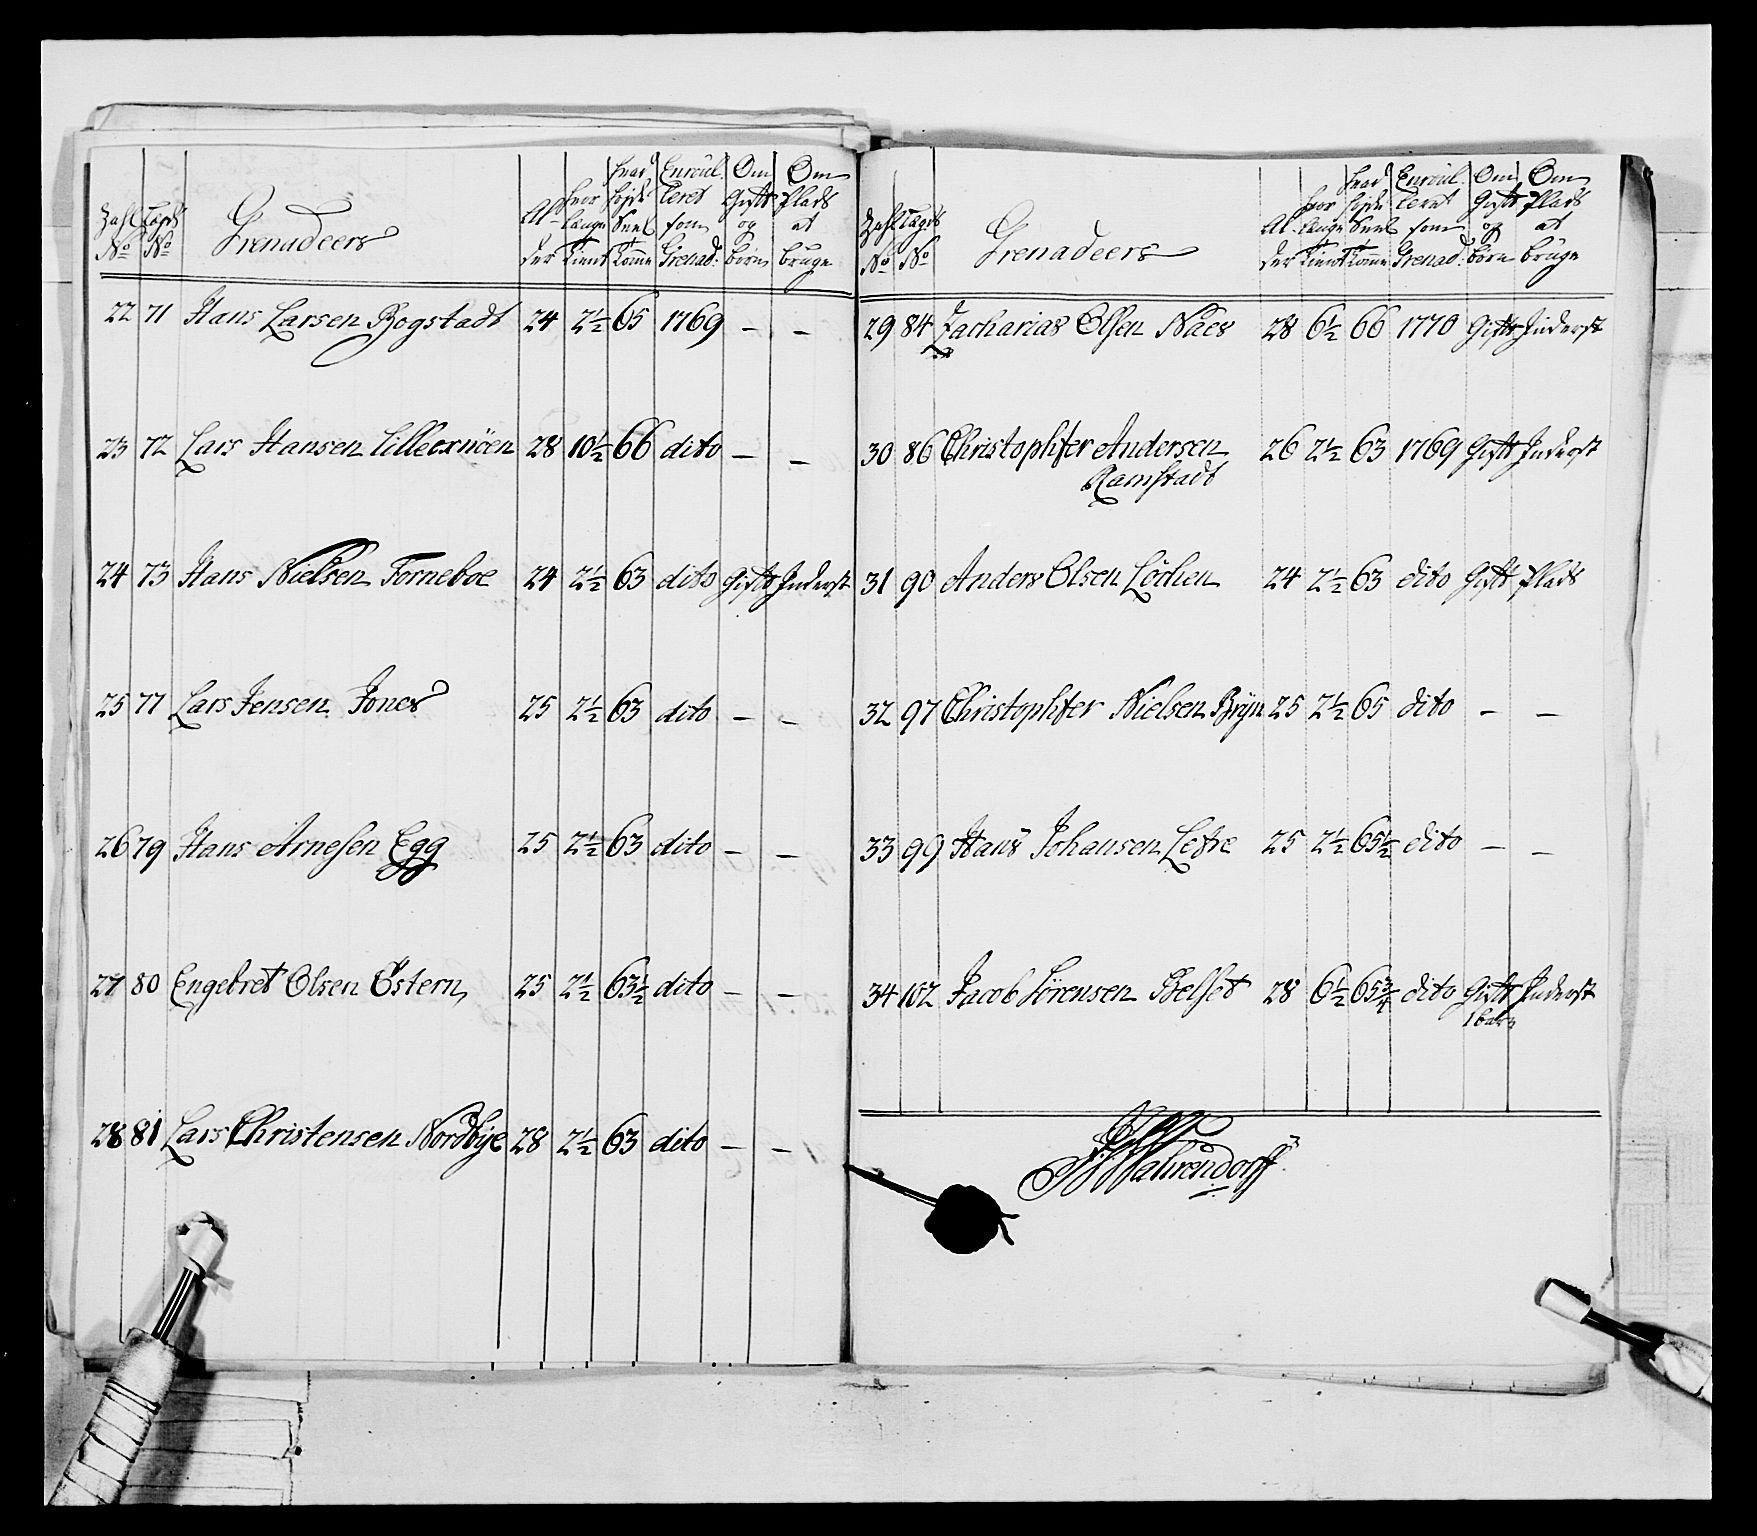 Zahl No
Lægds No
Grenadeers
Alder
hvor Længe Tient
hvad höyde uden Somme
Enroulleret som Grenad:
Om Gift og börn
Om Plads at bruge
22 71 Hans Larsen Bogstadt 24 2½ 65 1769 – –
23 72 Lars Hansen 28 10½ 66 dito – –
24 73 Hans Nielsen Torneboe 24 2½ 63 dito Gift Inderst
25 77 Lars Jensen Jones 25 2½ 63 dito – –
26 79 Hans Arnesen Egg 25 2½ 63 dito – –
27 80 Engebret Olsen Östern 25 2½ 63½ dito – –
28 81 Lars Christensen Nordbye 28 2½ 63 dito – –
Zahl No
Lægds No
Grenadeers
Alder
hvor Længe Tient
Enroulleret som Grenad:
Om Gift og börn
Om Plads at bruge
29 84 Zacharias Olsen Naes 28 6½ 66 1770 Gift Inderst
30 86 Christophfer Andersen 26 2½ 63 1769 Gift Inderst
Ramstadt
31 90 Anders Olsen Löchen 24 2½ 63 dito Gift Plads
32 97 Christophfer Nielsen Bryn 25 2½ 65 dito – –
33 99 Hans Johansen Lefre 25 2½ 65½ dito – –
34 102 Jacob Sörensen Belset 28 6½ 65¾ dito Gift Inderst
1 barn
Wahrendorff